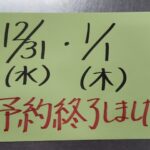 12/31・1/1
(水) (木)
予約終了しまし